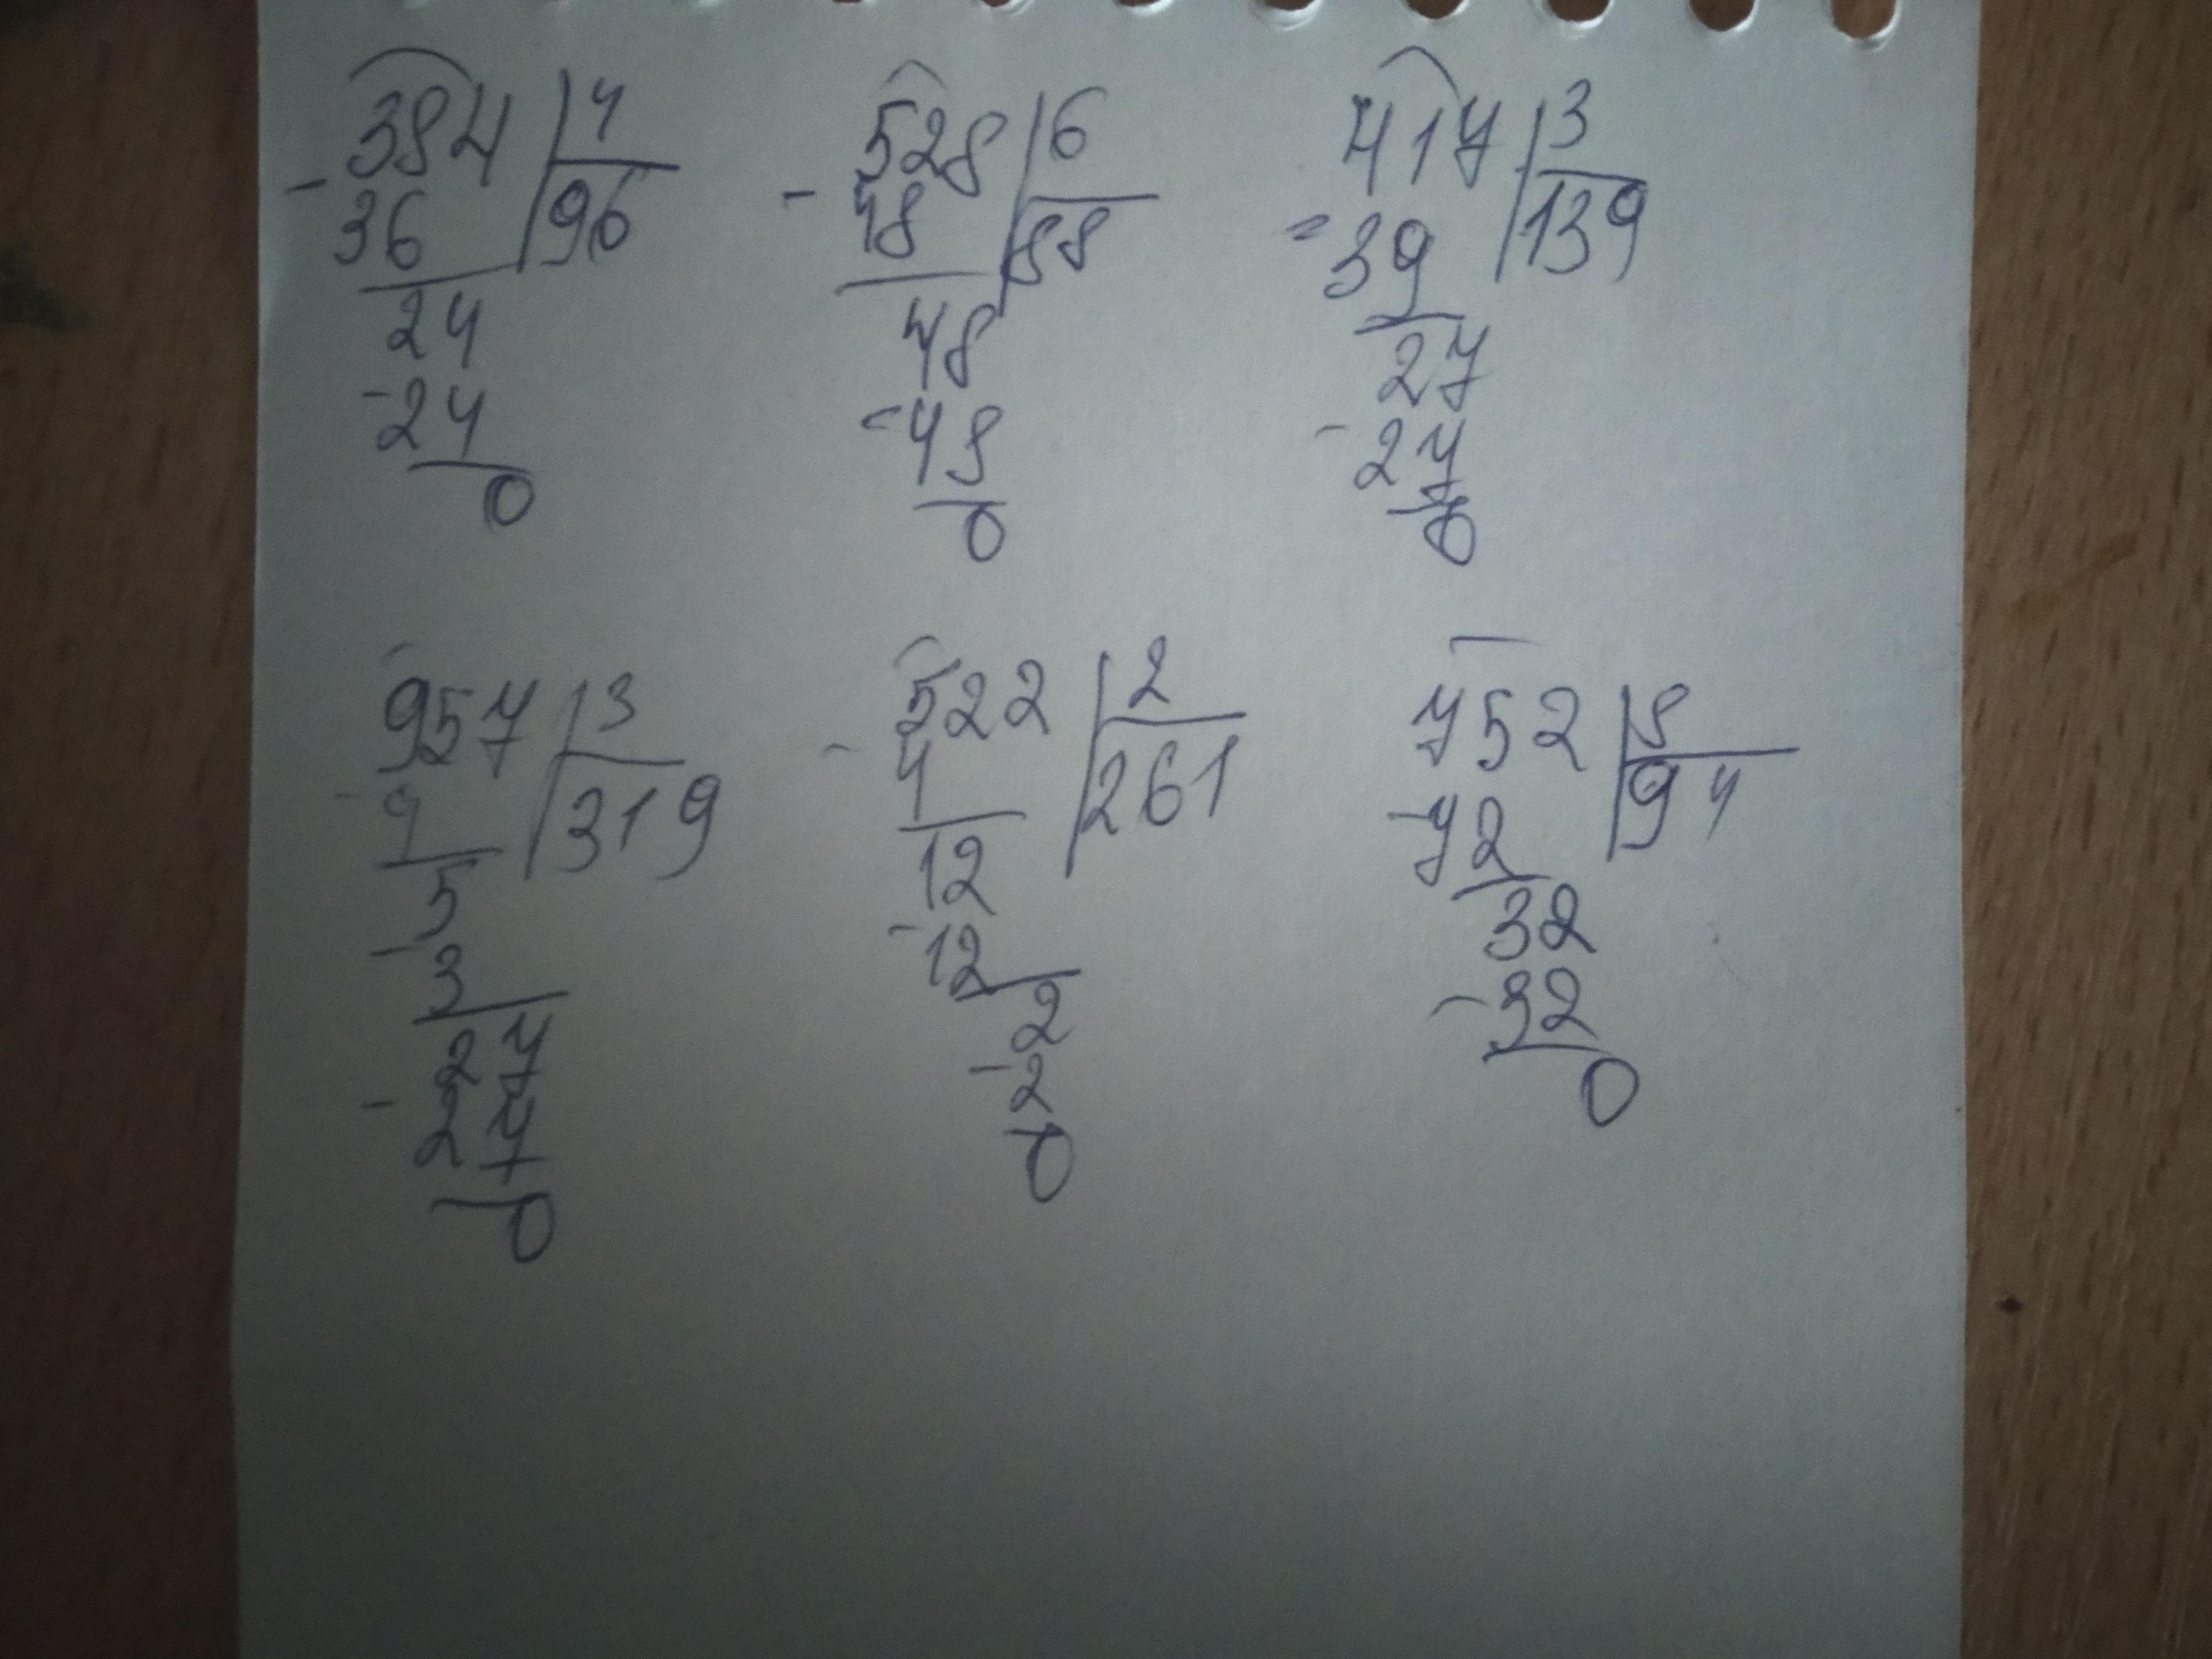 384 4
- 36 96
24
- 24
0
528 6
- 48 88
48
- 48
0
417 3
- 39 139
27
- 27
0
957 3
- 9 319
5
- 3
27
- 27
0
522 2
- 4 261
12
- 12
2
- 2
0
752 8
- 72 94
32
- 32
0